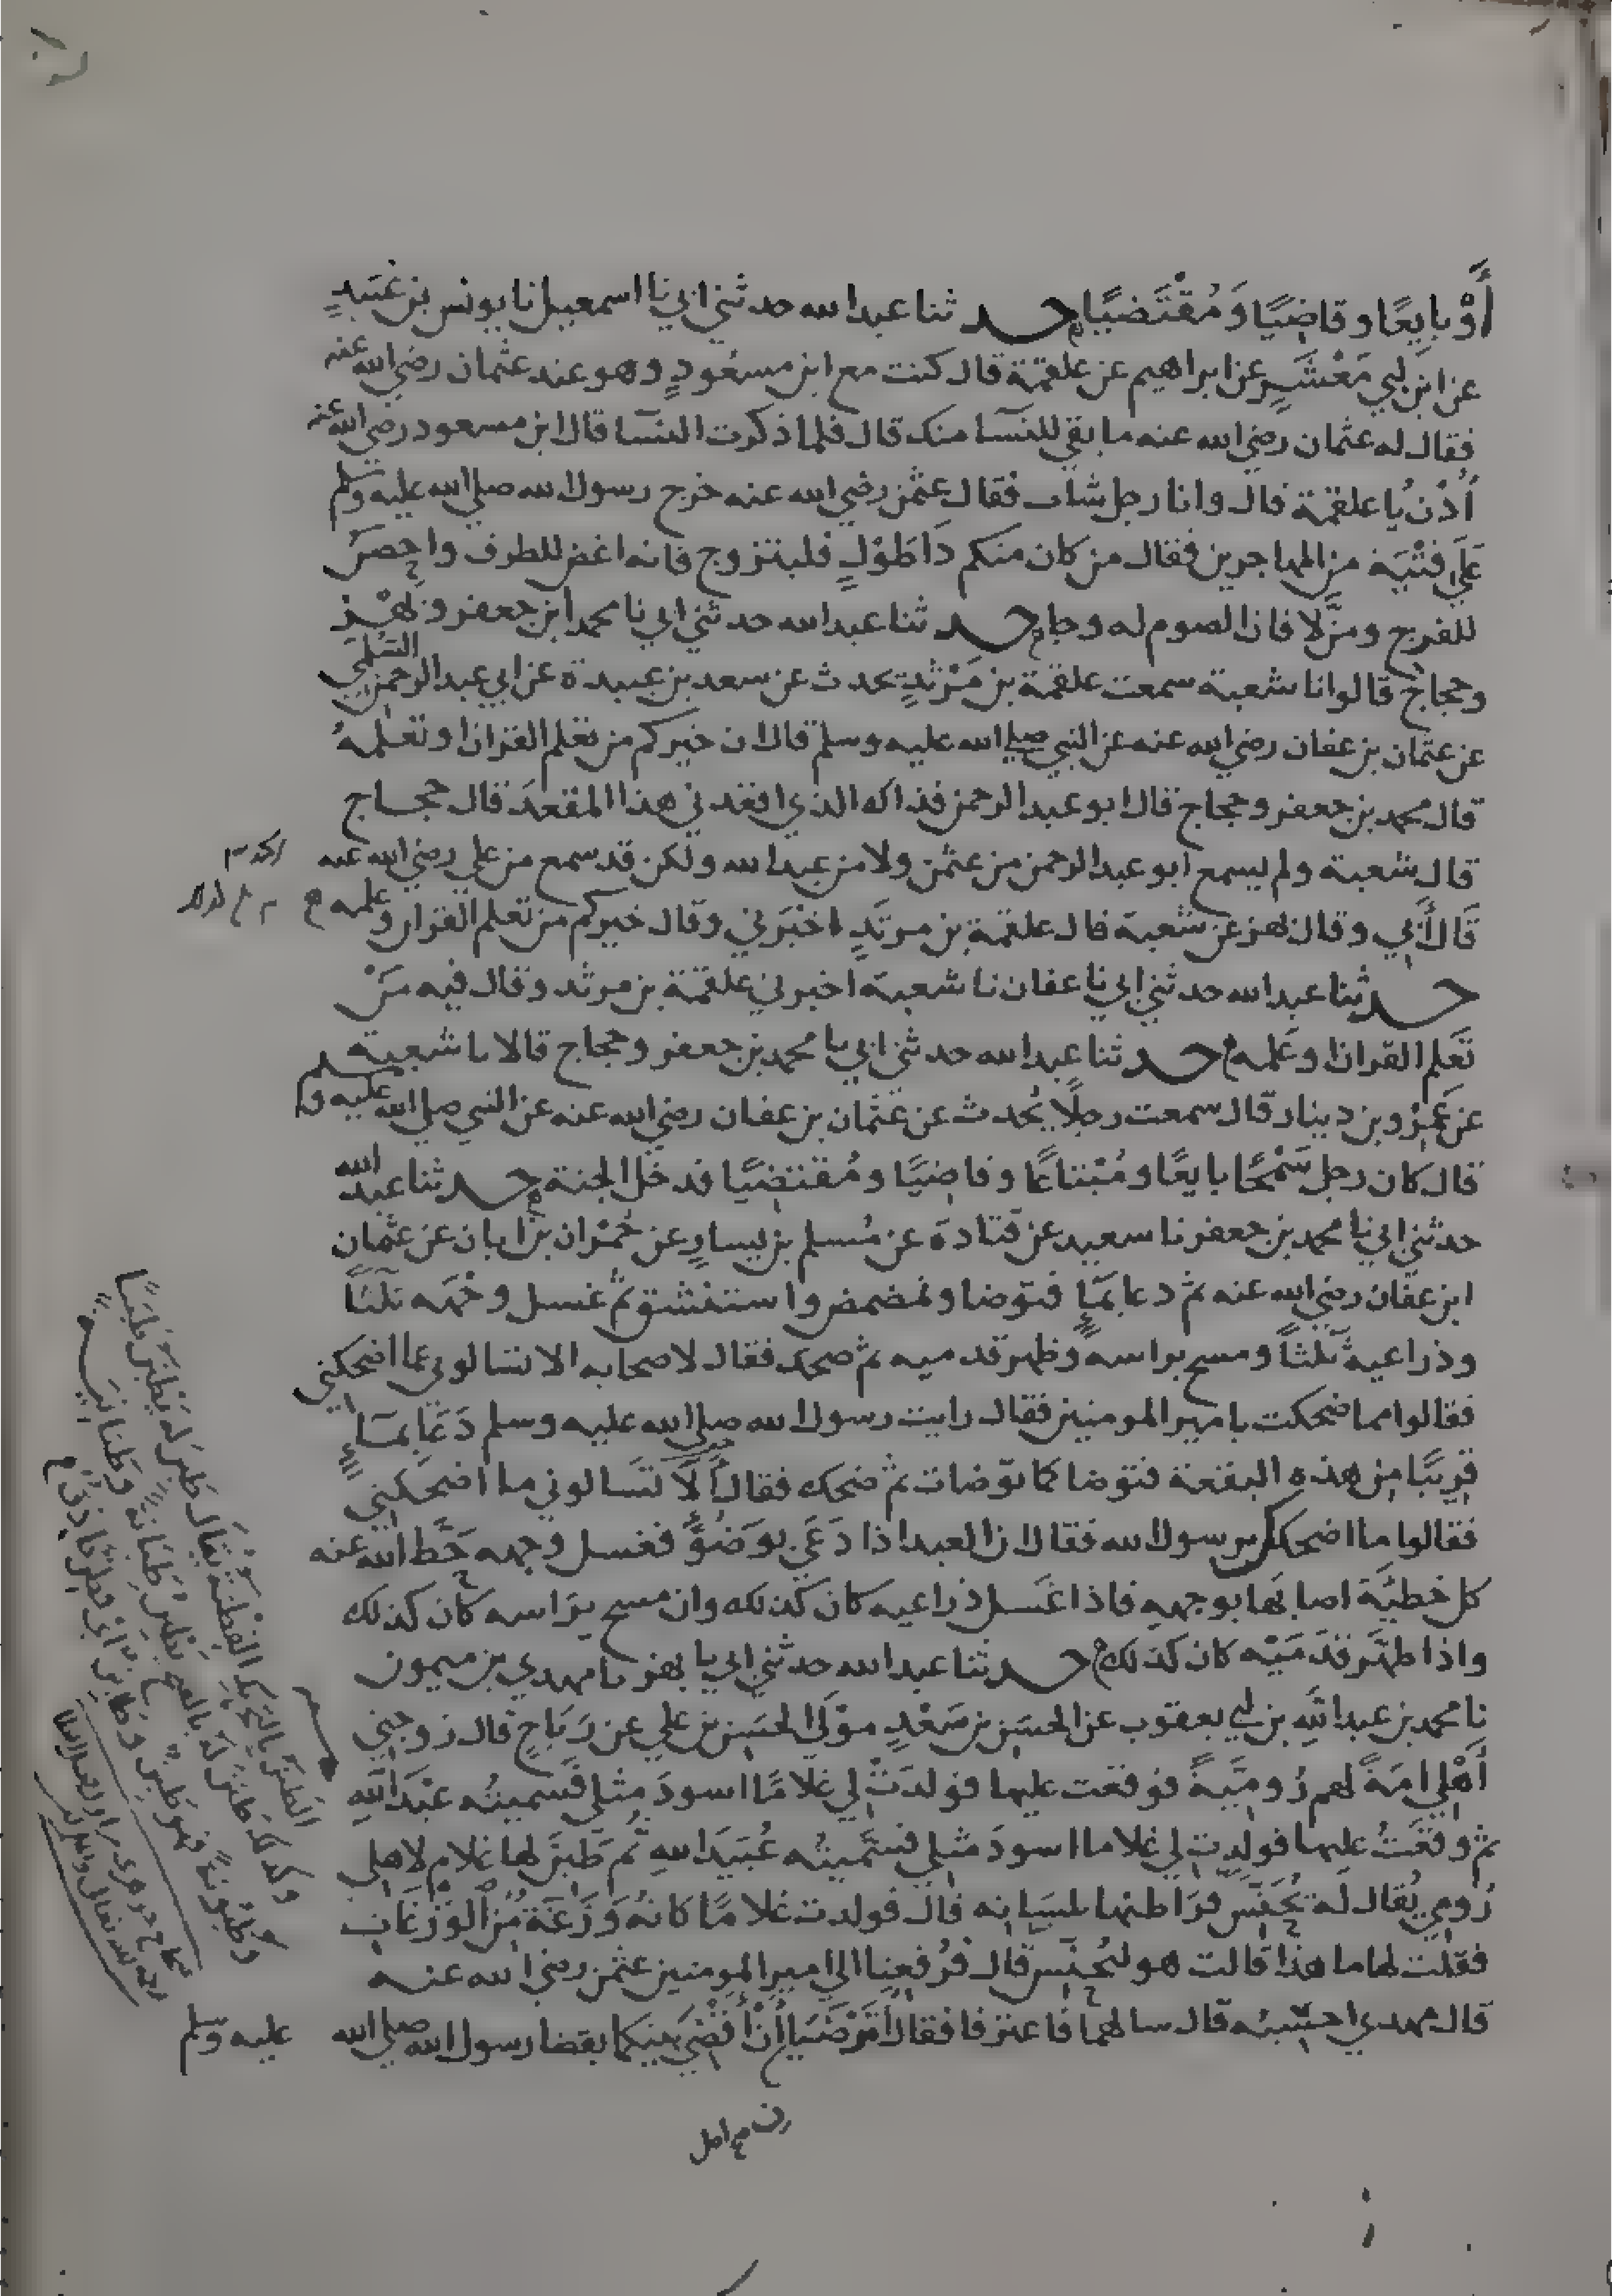 أَوْ بايعًا وقاضيًا وَمُقْتَضيًا حدثنا عبد الله حدثني ابي نا اسمعيل نا يونس بن عُبَيدٍ
عن ابن ابي مَعْشَرٍ عن ابراهيم عن علقمة قال كنت مع ابن مسعودٍ وهو عند عثمان رضي الله عنه
فقال له عثمان رضي الله عنه ما بقي للنسآ منك قال فلما ذكرت النسآ قال ابن مسعود رضي الله عنه
أُدْنُ يا علقمة قال وانا رجل شاب فقال عثمن رضي الله عنه خرج رسول الله صلى الله عليه وسلم
على فتْيَة من المهاجرين فقال من كان منكم ذا طَوْلٍ فليتزوج فانه اغض للطرف واحصَن
للفرج ومن لا فان الصوم له وجا حدثنا عبد الله حدثني ابي نا محمد ابن جعفر وبَهْز
وحجاج قالوا نا شعبة سمعت علقمة بن مَرْثَدٍ يحدث عن سعد بن عبيدة عن ابي عبد الرحمن السُّلَمي
عن عثمان بن عفان رضي الله عنه عن النبي صلى الله عليه وسلم قال ان خيركم من تعلم القران او تعلمهُ
قال محمد بن جعفر وحجاج قال ابو عبد الرحمن فذاك الذي اقعدني هذا المقعد قال حجاج
قال شعبة ولم يسمع ابو عبد الرحمن من عثمن ولا من عبد الله ولكن قد سمع من علي رضي الله عنه
قال أبي وقال بهز عن شعبة قال علقمة بن مرثدٍ اخبَرني وقال خيركم من تعلم القران وعلمه
حدثنا عبد الله حدثني ابي نا عفان نا شعبة اخبرني علقمة بن مرثد وقال فيه مَنْ
تَعلم القران وعَلمه حدثنا عبد الله حدثني ابي نا محمد بن جعفر وحجاج قالا نا شعبة
عن عَمْرو بن دينار قال سمعت رجلًا يُحدث عن عثمان بن عفان رضي الله عنه عن النبي صلى الله عليه وسلم
قال كان رجل سَمْحًا بايعًا ومُبْتاعًا وقاضيًا ومُقتضيًا فدخل الجنة حدثنا عبد الله
حدثني ابي نا محمد بن جعفر نا سعيد عن قتادة عن مُسلم بن يسارٍ عن حُمْران بن ابان عن عثمان
ابن عفان رضي الله عنه ثم دعا بمآءٍ فتوضا ومضمض واستنشق ثم غسل وجْهَه ثلثًا
وذراعيه ثلثًا ومسح براسه وظهر قدميه ثم ضحك فقال لاصحابه الا تسالوني عما اضحكني
فقالوا مما ضحكت يا مير المومنين فقال رايت رسول الله صلى الله عليه وسلم دَعَا بمآءٍ
قريبًا من هذه البقعة فتوضا كما توضات ثم ضحك فقال أَلَا تَسَالوني ما اضحكني
فقالوا ما اضحكك يرسول الله فقال ان العبد اذا دَعَى بوَضُوٍّ فغسل وجهه حَطَّ الله عنه
كل خطيَّة اصابَها بوجهه فاذا غَسَل ذراعيه كان كذلك وان مسح براسه كان كذلك
واذا طهَّر قدَمَيْه كان كذلك حدثنا عبد الله حدثني ابي نا بهز نا مهدي بن ميمون
نا محمد بن عبد الله بن ابي يعقوب عن الحسَن بن سَعْدٍ مولى الحسَن بن علي عن رَبَاحٍ قال زوجني
أَهْلي امَةً لهم رُومِيَّةً فوقعت عليها فولدَتْ لي غلامًا اسودَ مثلي فسَمَّيتُه عبْدَ اللهِ
ثم وقعْتُ عليها فولدت لي غلاما اسودَ مثلي فسَمَّيتُه عُبَيدَ اللهِ ثم طَبِنَ لها غلام لاهلي
رُومي يُقال له يُحَنَّس فرَاطنها بلسَانه قال فولدت غلامًا كانهُ وَزَغَة مُن الوَزَغَاتِ
فقلت لها ما هذا قالت هو ليُحَنَّس قال فرُفعنا الى امير المومنين عثمن رضي الله عنه
قال مهدي احسبُه قال سالهما فاعترفا فقال أَتَرْضَيَا أَنْ أَقْضِيَ بينكما بقضا رسول الله صلى الله عليه وسلم
الطَّبَنُ بالتحريك الفِطْنَة يُقَالُ طَبِنَ لَه يَطْبَن طَبَنًا
وكذلك طَبَنَ له بالفتح يَطْبِنُ طَبَانَةً وطَبَانِيَةً
وطُبُونَةً فهو طَبِنٌ وطَابِنٌ ايْ فَطِنٌ حَاذِقٌ